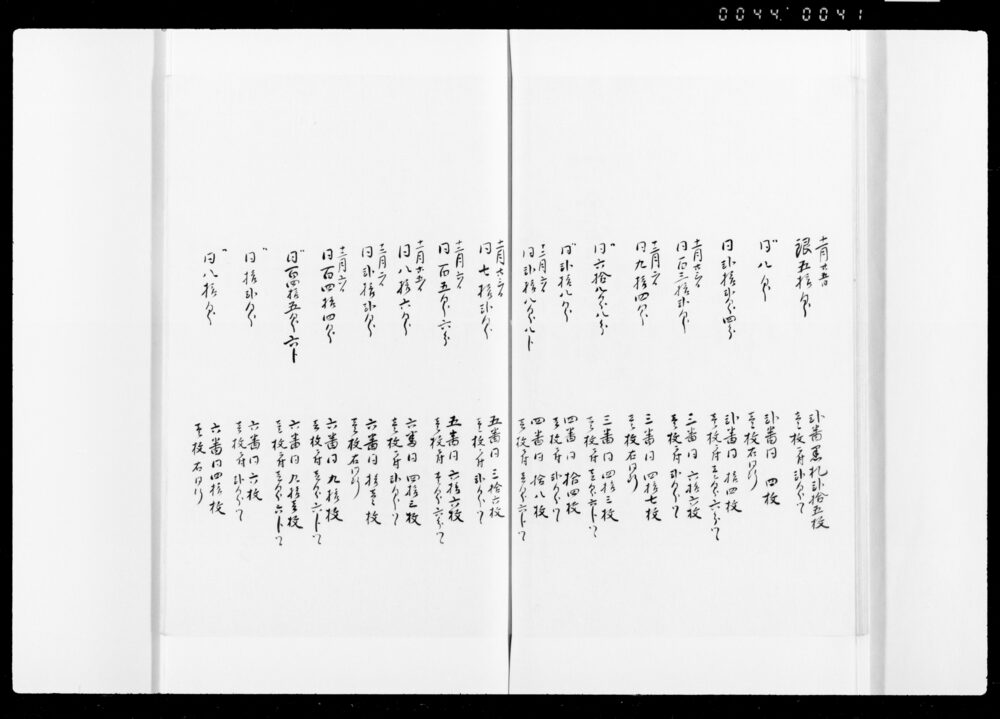 十一月廿五日
銀五拾匁
弐番黒札弐拾五枚
壱枚ニ付弐匁ツヽ
〃
同八匁
弐番同　四枚
壱枚右同断
同弐拾弐匁四分
弐番同　拾四枚
壱枚ニ付壱匁六分ツヽ
同百三拾弐匁
三番同　六拾六枚
壱枚ニ付弐匁ツヽ
十二月六日
同九拾四匁
三番同　四拾七枚
壱枚右同断
〃
同六拾八匁八分
三番同　四拾三枚
壱枚ニ付壱匁六分ツヽ
〃
同弐拾八匁
四番同　拾四枚
壱枚ニ付弐匁ツヽ
十二月六日
同弐拾八匁八分
四番同　拾八枚
壱枚ニ付壱匁六分ツヽ
同七拾弐匁
五番同　三拾六枚
壱枚ニ付弐匁ツヽ
十二月六日
同百五匁六分
五番同　六拾六枚
壱枚ニ付壱匁六分ツヽ
同八拾六匁
六番同　四拾三枚
壱枚ニ付弐匁ツヽ
十二月六日
同弐拾弐匁
六番同　拾壱枚
壱枚右同断
十二月六日
同百四拾四匁
六番同　九拾枚
壱枚ニ付壱匁六分ツヽ
〃
同百四拾五匁六分
六番同　九拾壱枚
壱枚ニ付壱匁六分ツヽ
〃
同拾弐匁
六番同　六枚
壱枚ニ付弐匁ツヽ
〃
同八拾匁
六番同四拾枚
壱枚右同断
0044 0041